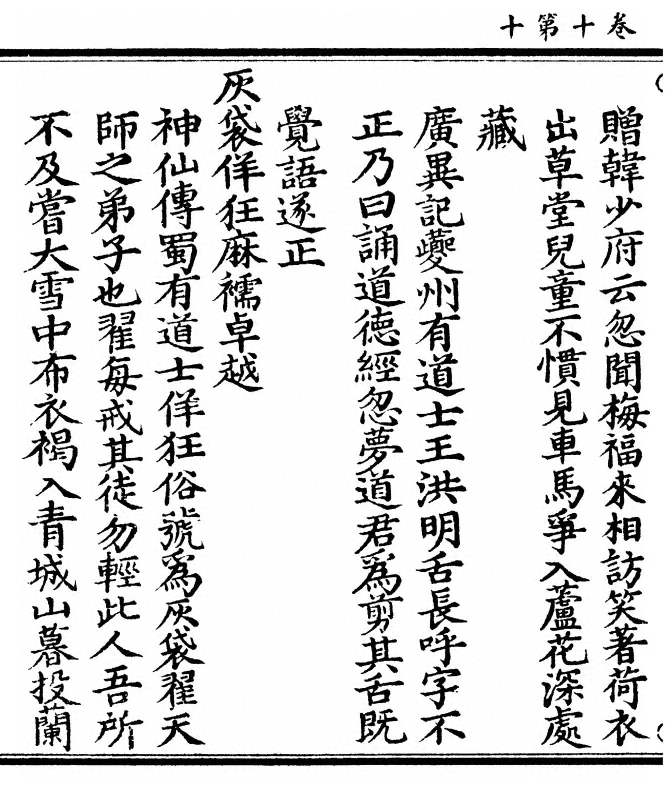 卷十第十
贈韓少府云忽聞梅福來相訪笑著荷衣
出草堂兒童不慣見車馬爭入蘆花深處
藏
廣異記夔州有道士王洪明舌長呼字不
正乃曰誦道德經忽夢道君爲剪其舌既
覺語遂正
灰袋佯狂麻襦卓越
神仙傳蜀有道士佯狂俗號爲灰袋翟天
師之弟子也翟每戒其徒勿輕此人吾所
不及嘗大雪中布衣褐入青城山暮投蘭